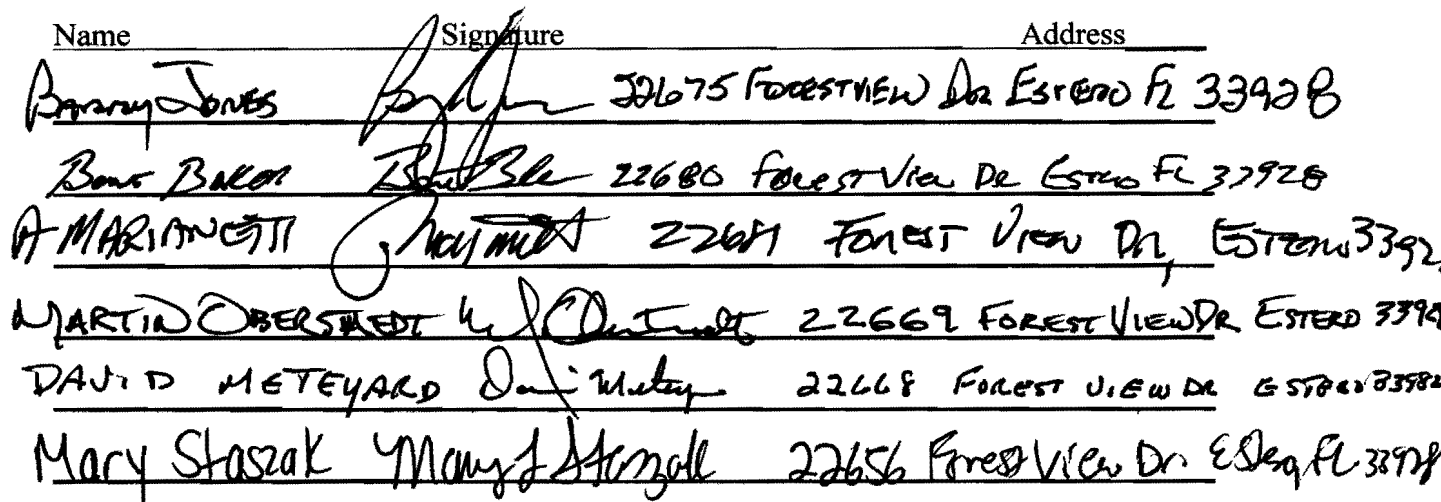 Name Signature Address
Barry Jones 22675 Forestview Dr Estero FL 33928
Baker 22680 Forest View Dr Estero FL 33928
A MARIANETTI 22681 FOREST VIEW DR, ESTERO 3392
MARTIN OBERSTEDT 22669 FOREST VIEW DR ESTERO 3392
DAVID METEYARD 22668 FOREST VIEW DR ESTERO 33982
Mary Staszak Mary L Staszak 22656 Forest View Dr Estero, FL 33928